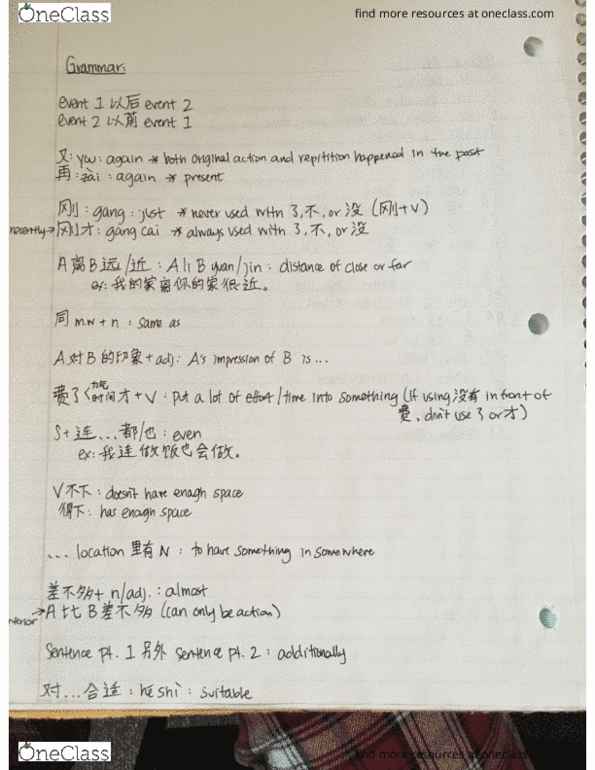 OneClass
find more resources at oneclass.com
Grammar:
event 1 以后 event 2
event 2 以前 event 1
又: you: again * both original action and repitition happened in the past
再: zài: again * present
刚: gang: just * never used with 了,不, or 没 (刚+V)
recently→刚才: gang cai * always used with 了,不, or 没
A 离 B 远/近: A li B yuan/jin: distance of close or far
ex: 我的家离你的家很近。
同 m.w + n: same as
A 对 B 的印象+adj: A's impression of B is...
费了<力气 时间 才+V: put a lot of effort/time into something (if using 没有 in front of
费, don't use 了 or 才)
S+连...都/也: even
ex: 我连做饭也会做。
V不下: doesn't have enagh space
得下: has enagh space
... location 里有 N: to have something in somewhere
差不多+ n/adj.: almost
→A 比 B 差不多 (can only be action)
Sentence pt. 1 另外 sentence pt. 2: additionally
对...合适: hé shì: suitable
OneClass
find more resources at oneclass.com